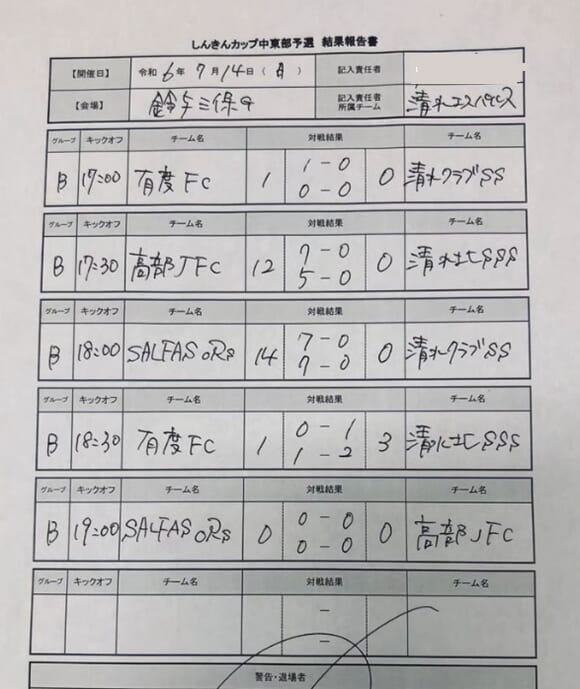 しんきんカップ中東部予選 結果報告書
【開催日】 令和 6年 7月 14日 (日) 記入責任者
【会場】 鈴与三保G 記入責任者所属チーム 清水エスパルス
グループ キックオフ チーム名 対戦結果 チーム名
B 17:00 有度FC 1 1-0 0 清水クラブSS
0-0
グループ キックオフ チーム名 対戦結果 チーム名
B 17:30 高部JFC 12 7-0 0 清水北SSS
5-0
グループ キックオフ チーム名 対戦結果 チーム名
B 18:00 SALFAS oRs 14 7-0 0 清水クラブSS
7-0
グループ キックオフ チーム名 対戦結果 チーム名
B 18:30 有度FC 1 0-1 3 清水北SSS
1-2
グループ キックオフ チーム名 対戦結果 チーム名
B 19:00 SALFAS oRs 0 0-0 0 高部JFC
0-0
グループ キックオフ チーム名 対戦結果 チーム名
-
-
警告・退場者